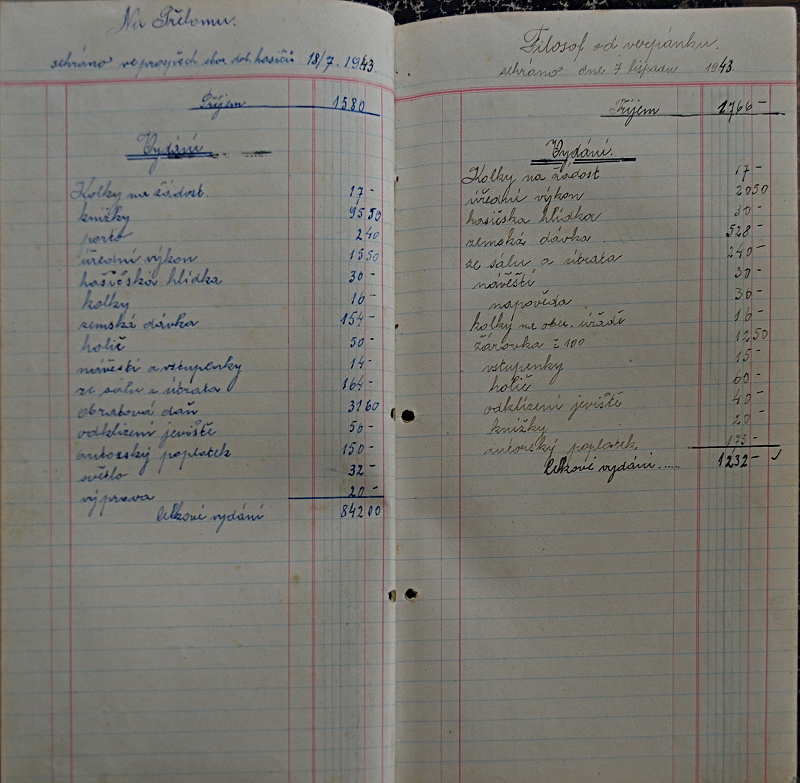 Na Přelomu.
sehráno ve prospěch sbor. dob. hasičů 18/7. 1943
Příjem 1580
Vydání
Kolky na žádost. 17 -
knížky 95 50
porto 2 40
úřední výkon 15 50
hasičská hlídka 30 -
kolky 16 -
zemská dávka 154 -
holič 50 -
návěstí a vstupenky 14 -
ze sálu a útrata 164 -
obratová daň 31 60
odklizení jeviště 50 -
autorský poplatek 150 -
světlo 32 -
výprava 20 -
Celkové vydání 842 00
Filosof od verpánku.
sehráno dne 7 listpadu 1943.
Příjem 1766 -
Vydání.
Kolky na žádost 17 -
úřední výkon 20 50
hasičska hlídka 30 -
zemská dávka 528 -
ze sálu a útrata 240 -
návěstí 30 -
napověda 30 -
kolky na obec. úřadě 16 -
žárovka č 100 12 50
vstupenky 15 -
holič 60 -
odklizení jeviště 40 -
knížky 20 -
poplatek 173 -
Celkové vydání...... 1232 -